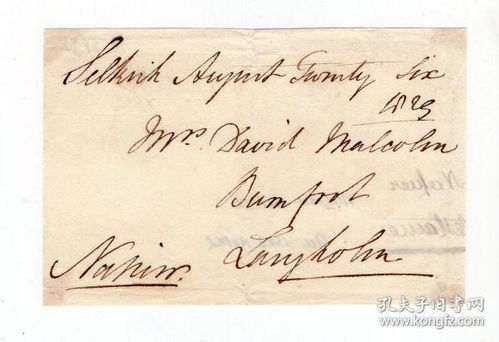 Selkirk August Twenty Six
1829
Mrs. David Malcolm
Burnfoot
Langholm
Napier.
Napier
孔夫子旧书网
www.kongfz.com